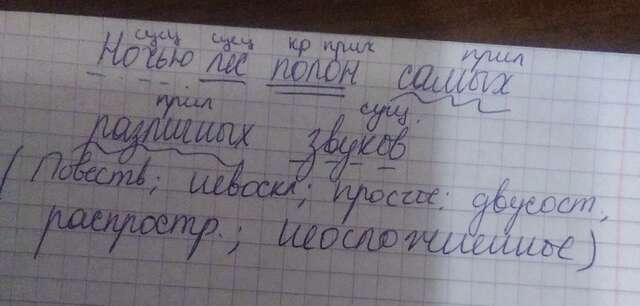 сущ сущ кр прич прил
Ночью лес полон самых
прил сущ.
различных звуков
(Повеств; невоскл; простое; двусост;
распростр.; неосложненное)